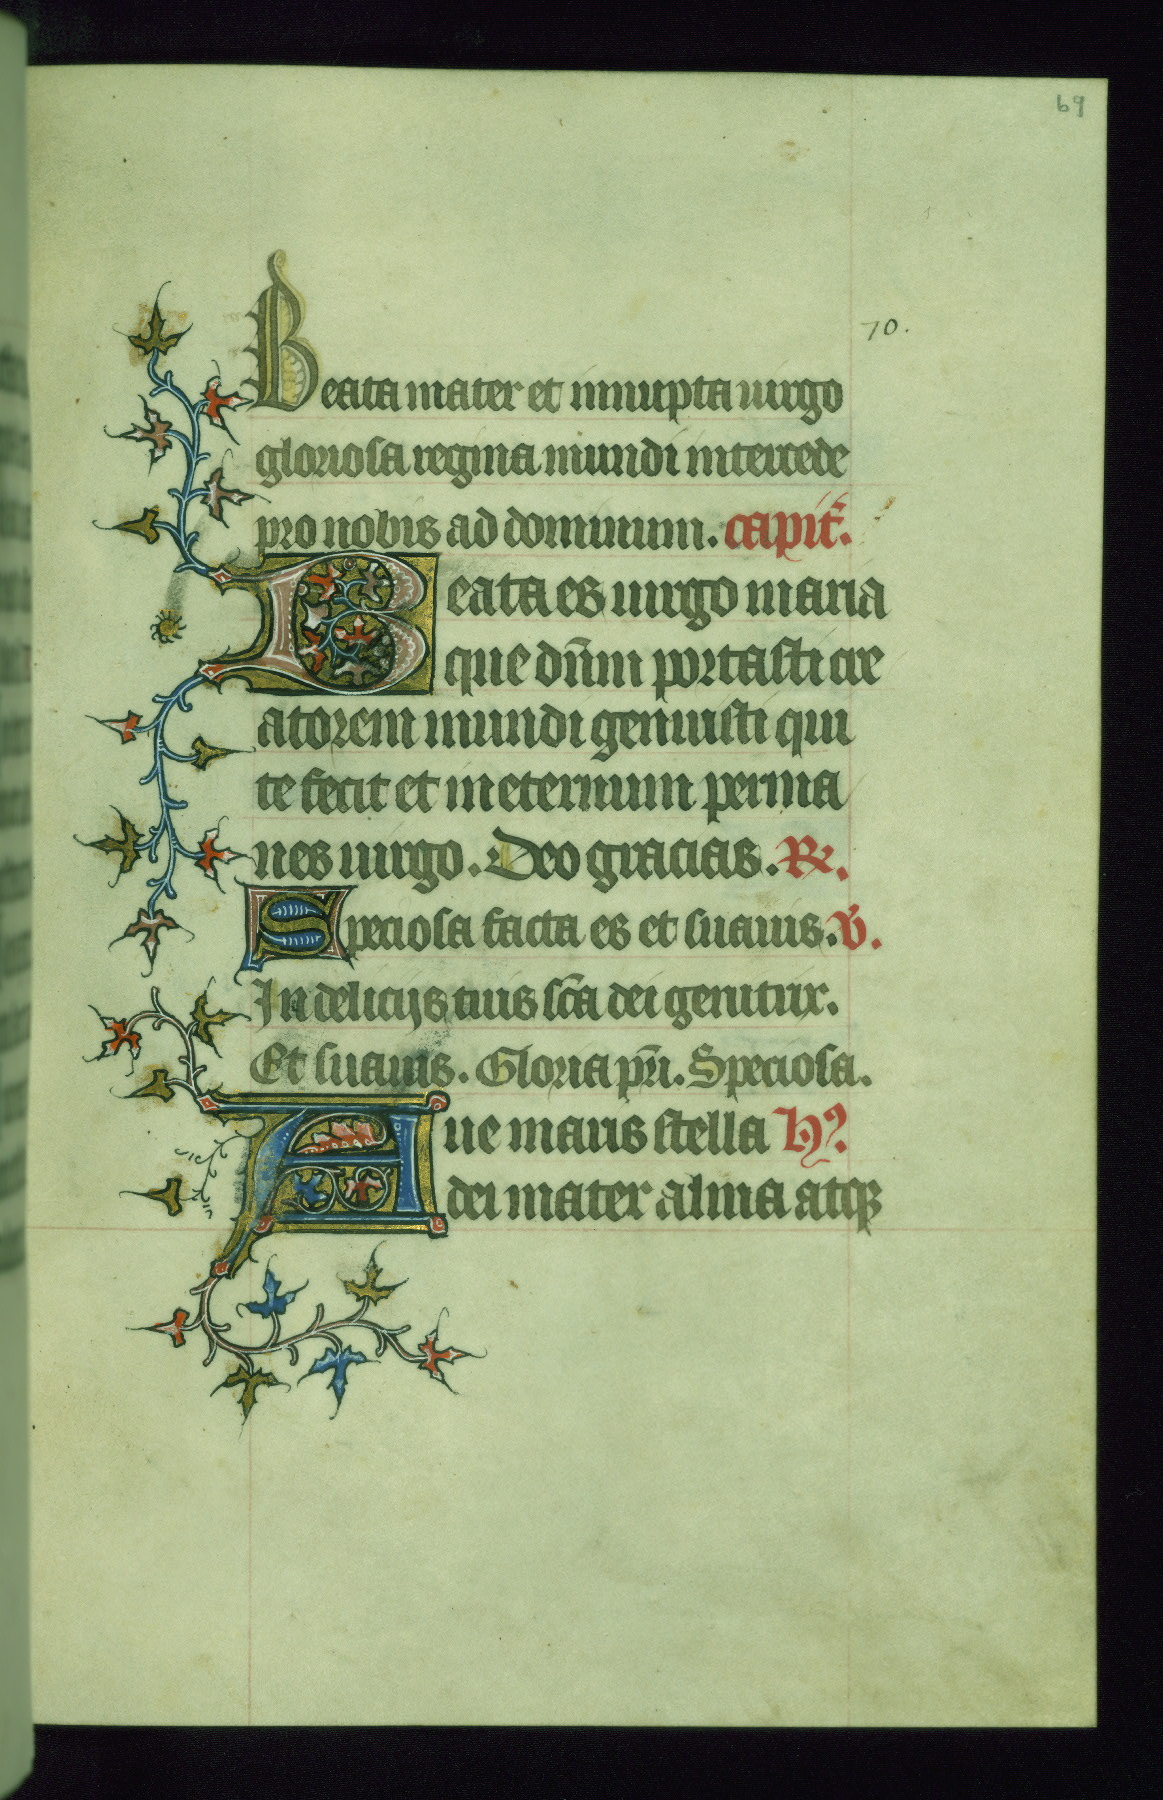 69
70.
Beata mater et innupta uirgo
gloriosa regina mundi intercede
pro nobis ad dominum. capit̄.
Beata es uirgo maria
que dn̄m portasti cre
atorem mundi genuisti qui
te fecit et in eternum perma
nes uirgo. Deo gracias. R̷.
Speciosa facta es et suauis. V̄.
In delicijs tuis sc̄a dei genitrix.
Et suauis. Gloria pr̄i. Speciosa.
Aue maris stella hꝰ.
dei mater alma atqꝫ